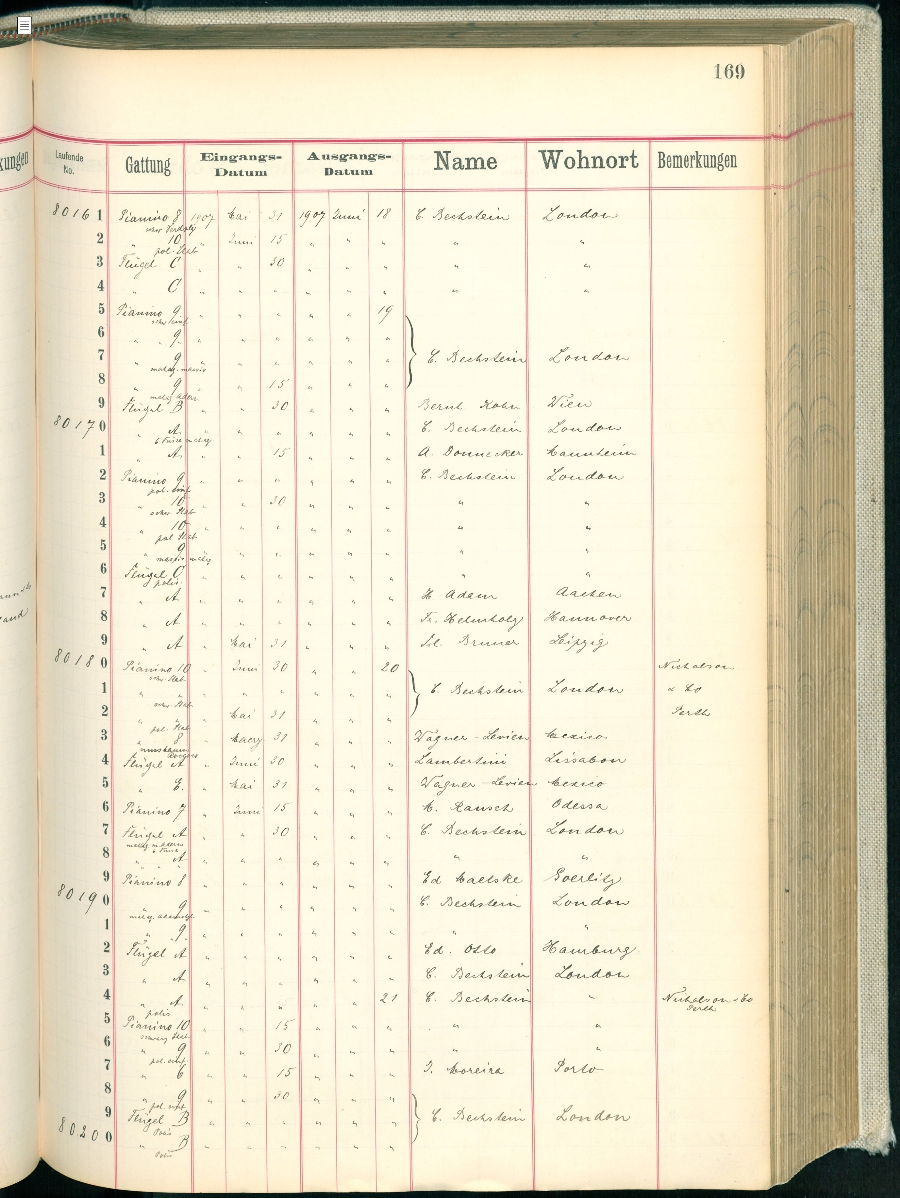 169
kungen
Laufende No. Gattung Eingangs-Datum Ausgangs-Datum Name Wohnort Bemerkungen
8016 1 Pianino 8 1907 Mai 31 1907 Juni 18 C. Bechstein London
2 " 10 " Juni 15 " " " " "
pol.
3 Flügel C " " 30 " " " " "
4 " C " " " " " " " "
5 Pianino 9 " " " " " 19
6 " " 9 " " " " " "
7 " 9 " " " " " " C. Bechstein London
mahag. massiv
8 " 9 " " 15 " " "
9 Flügel B " " 30 " " " Bernh Kohn Wien
8017 0 " A " " " " " " C. Bechstein London
1 " A " " 15 " " " A. Donnecker Mannheim
2 Pianino 9 " " " " " " C. Bechstein London
pol.
3 " 10 " " 30 " " " " "
4 " 10 " " " " " " " "
pol
5 " 9 " " " " " " " "
massiv mahg
6 Flügel C " " " " " " " "
polis.
7 " A " " " " " " H Adam Aachen
8 " A " " " " " " Fr. Helmholz Hannover
9 " A " Mai 31 " " " Bruner Leipzig
8018 0 Pianino 10 " Juni 30 " " 20 Nicholson
1 " " " " " " " " C. Bechstein London & Co
2 " " " Mai 31 " " " Perth
pol.
3 " 8 " Maerz 31 " " " Wagner-Levien Mexico
4 Flügel A " Juni 30 " " " Lambertini Lissabon
5 " E. " Mai 31 " " " Wagner-Levien Mexico
6 Pianino 7 " Juni 15 " " " M. Rausch Odessa
7 Flügel A " " 30 " " " C. Bechstein London
8 " A " " " " " " " "
9 Pianino 8 " " " " " " Ed Maetske Goerlitz
8019 0 " 9 " " " " " " C. Bechstein London
1 " 9 " " " " " " " "
2 Flügel A " " " " " " Ed. Otto Hamburg
3 " A " " " " " " C. Bechstein London
4 " A. " " " " " 21 C. Bechstein " Nicholson & Co
polis Perth
5 Pianino 10 " " 15 " " " " "
6 " 9 " " 30 " " " " "
pol.
7 " 6 " " 15 " " " Moreira Porto
8 " 9 " " 30 " " "
pol.
9 Flügel B " " " " " " C. Bechstein London
Polis
8020 0 " B " " " " " "
Polis